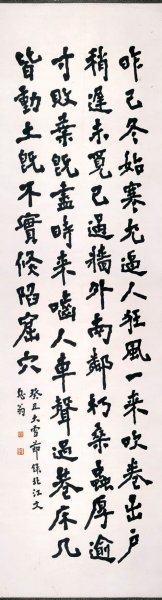 昨己冬始寒尤逼人狂風一来吹卷出戶
稍遲未覓已過牆外南鄰朽桑蟲厚逾
寸敗葉既盡時来嚙人車聲過巷床几
皆動土既不實倏陷窟穴
癸丑大雪節録北江文
翁